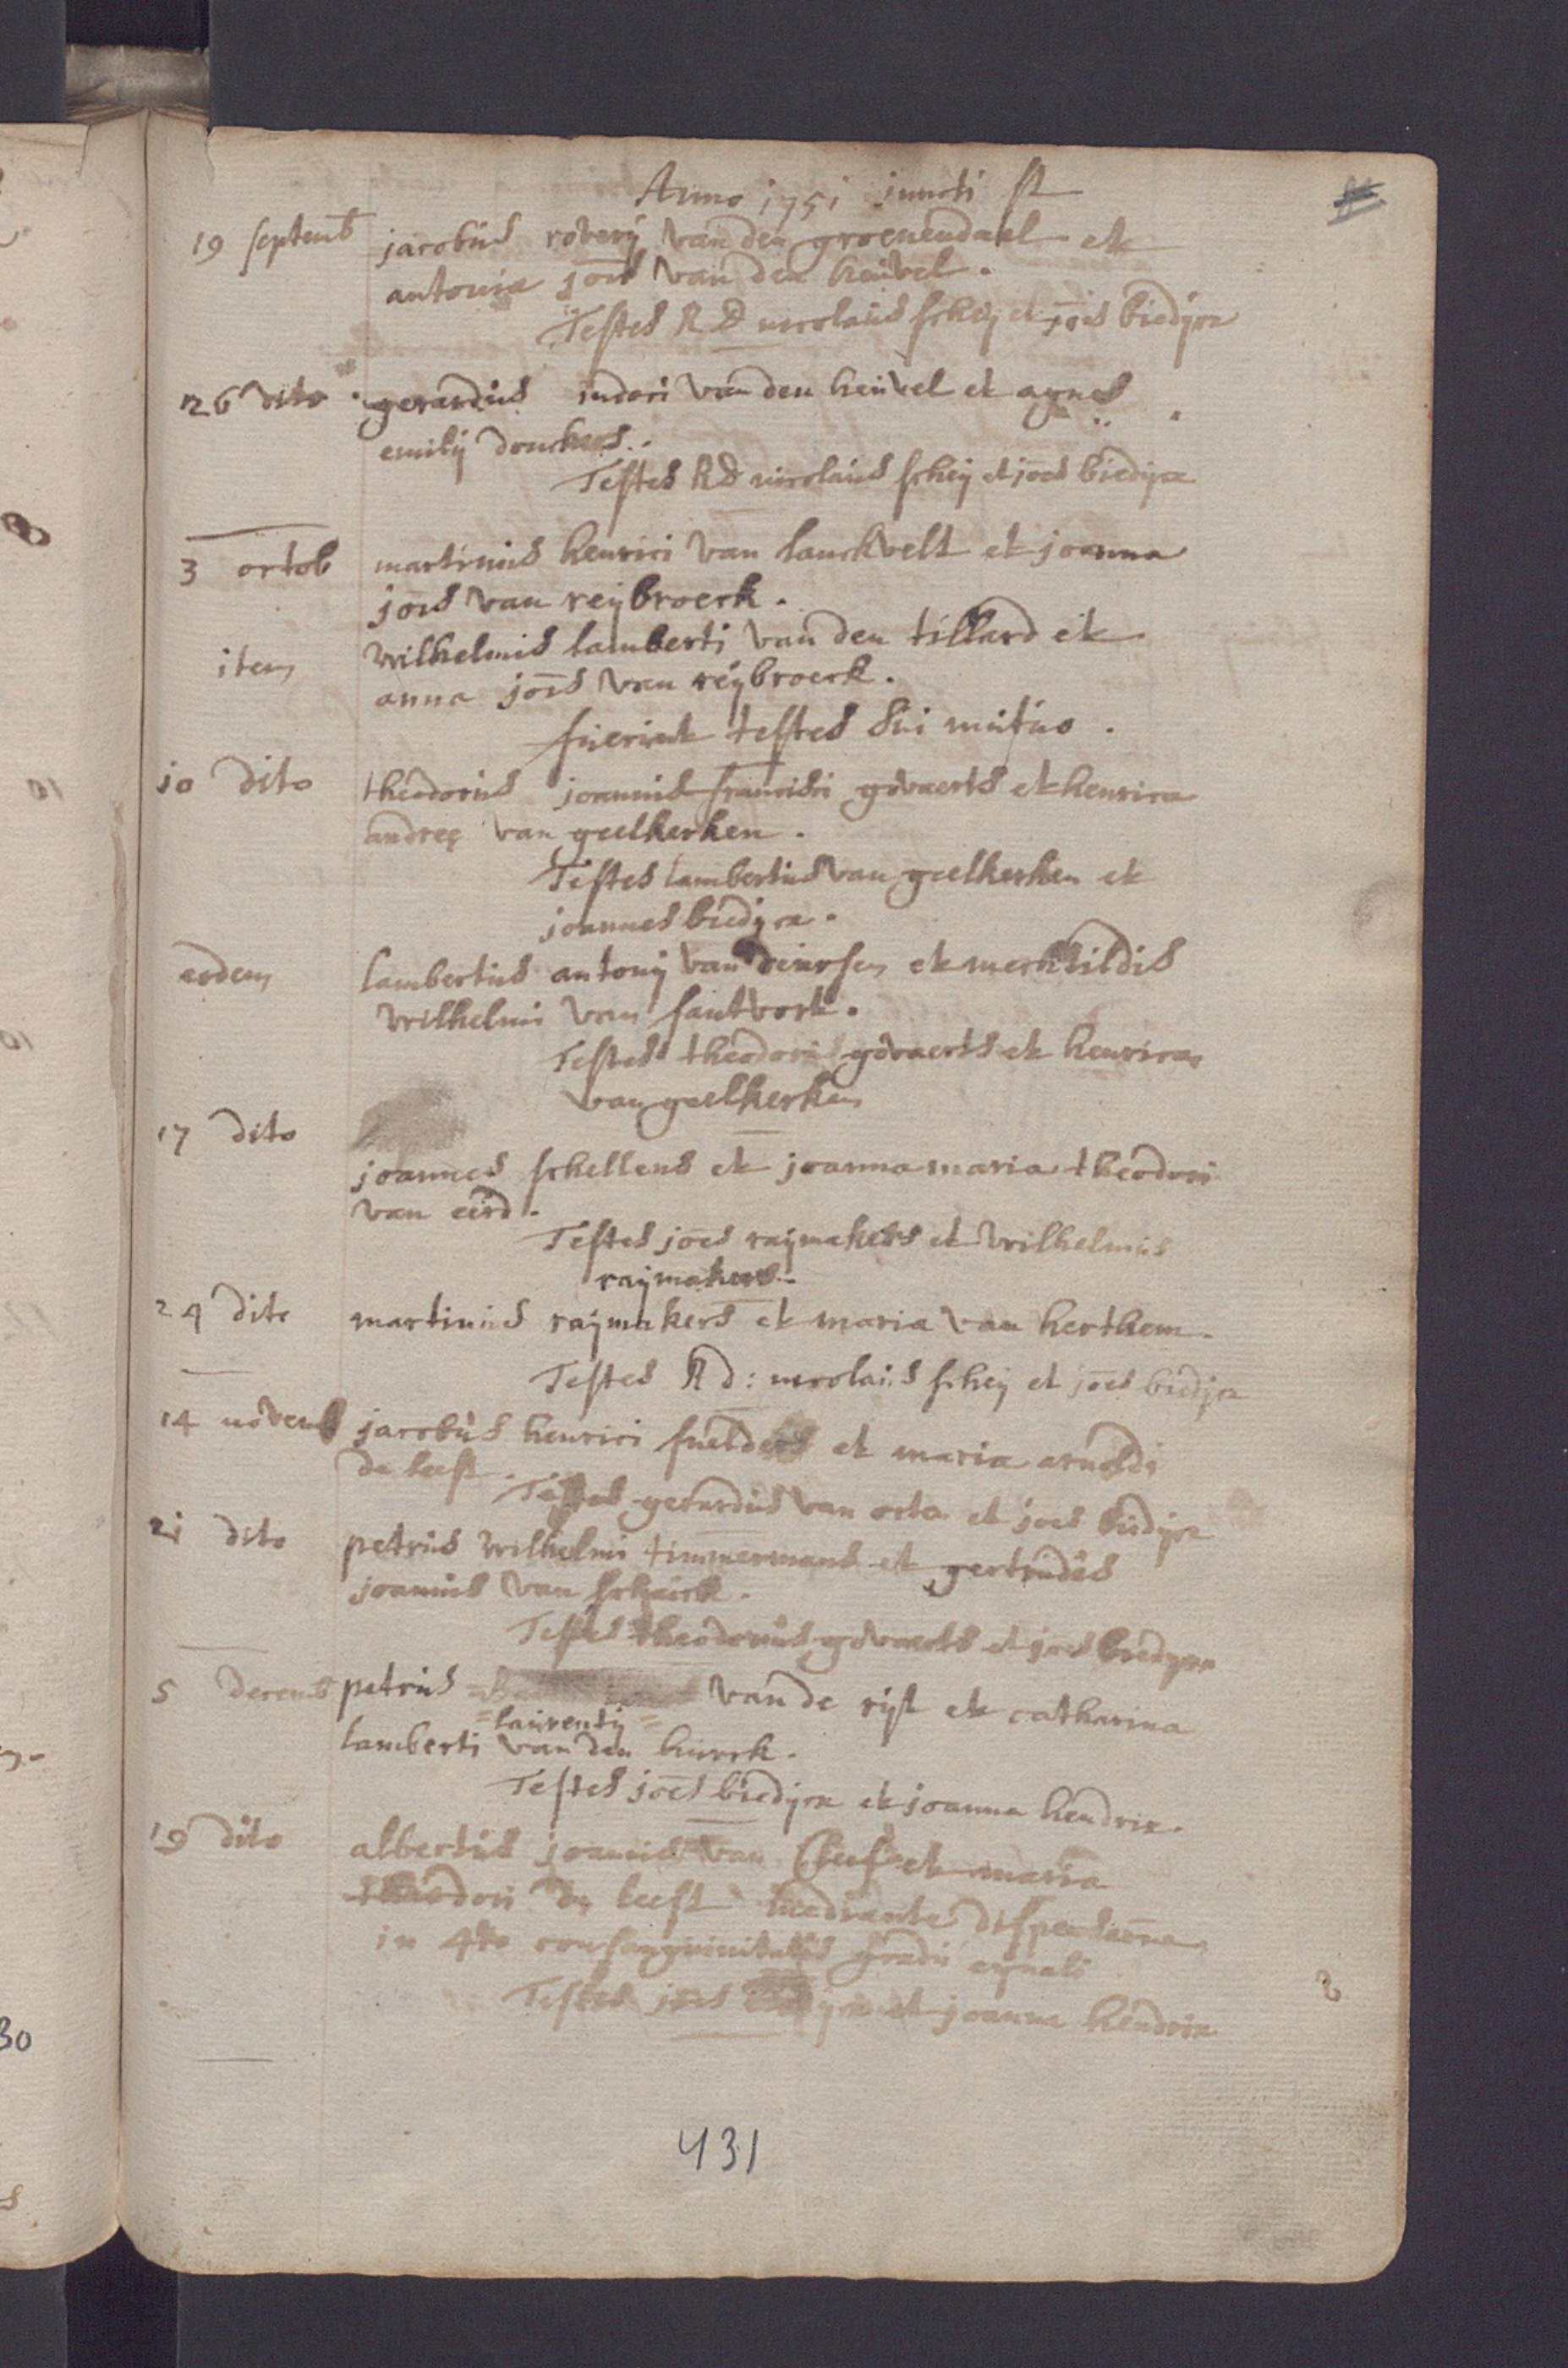 Anno 1751 juncti st
19 septemb jacobus roverij van den groenendael et
antonia jois van den heuvel.
Testes RD nicolaus schey et joes biedijcx
26 dito gerardus judoci van den heuvel et agnes
emilij donckers.
Testes RD nicolaus schey et joes biedijcx
3 octob martinus henrici van lanckvelt et joanna
jois van reijbroeck.
item wilhelmus lamberti van den tillard et
anna jois van reijbroeck.
fuerunt testes sui mutuo.
10 dito theodorus joannis francisci govaerts et henrica
andreę van geelkerken.
Testes lambertus van geelkerken et
joannes biedijcx.
eodem lambertus antonij van deursen et mechtildis
wilhelmi van santvort.
Testes theodorus govaerts et henrica
van geelkerken
17 dito
joannes schellens et joanna maria theodori
van eerd.
Testes joes raijmakers et wilhelmus
raijmakers.
24 dito martinus raijmakers et maria van herthem.
Testes RD: nicolaus schey et joes biedijcx
14 novemb jacobus henrici snelders et maria arnoldi
de leest.
Testes gerardus van orten et joes biedijcx
21 dito petrus wilhelmi timmermans et gertrudis
joannis van schaick.
Testes theodorus govaerts et joes biedijcx
5 decemb petrus van de rijt et catharina
=laurentij=
lamberti van den hurck.
Testes joes biedijcx et joanna hendrix.
19 dito albertus joannis van cleef et maria
theodori de leest mediante dispensaone
in 4to consanguinitatis gradu equali
Testes joes et joanna hendrix
431